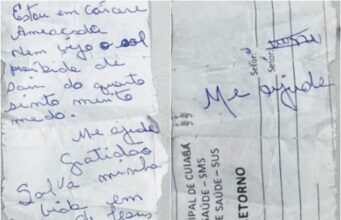 Estou em Cárcere
Ameaçada
Nem vejo o sol
proibida de
sair do quarto
sinto muito
medo.
Me ajude
Gratidão
Salva minha
vida em
de Jesus
Me ajude
Setor
IPAL DE CUIABÁ
SAÚDE - SMS
E SAÚDE - SUS
RETORNO